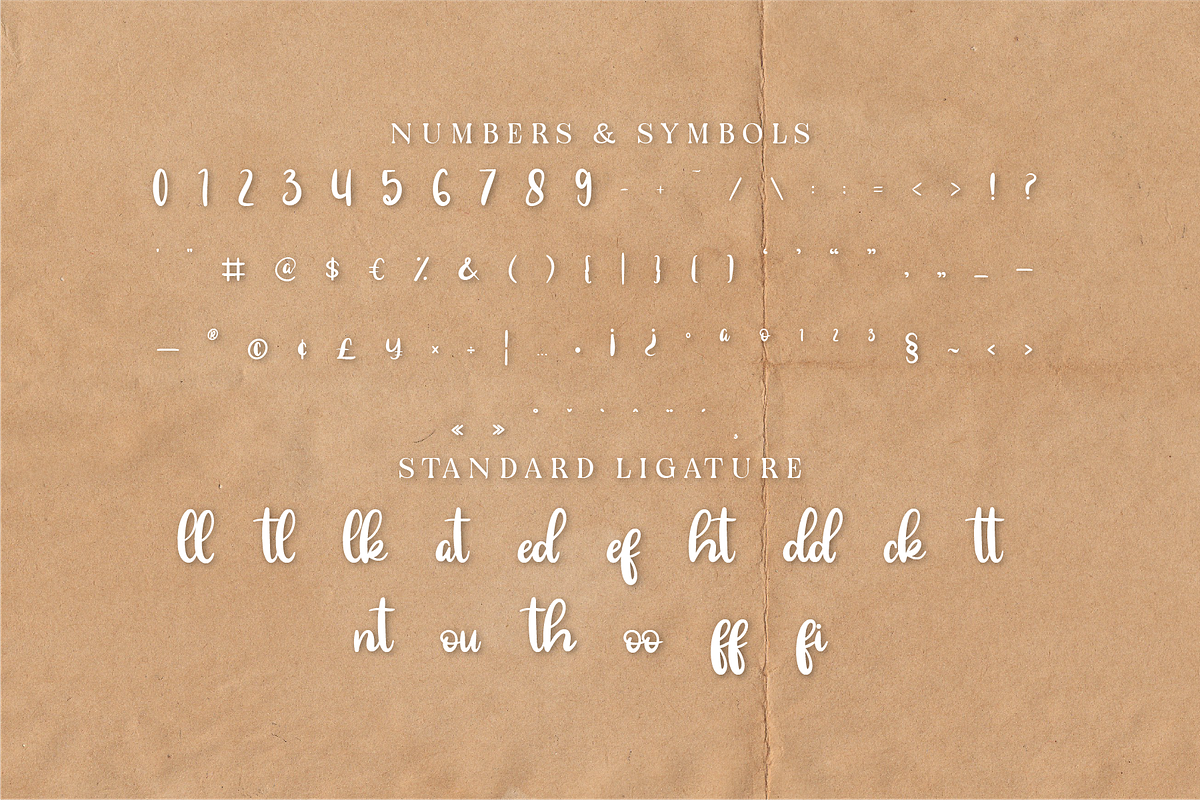 NUMBERS & SYMBOLS
0 1 2 3 4 5 6 7 8 9 - + ¯ / \ : : = < > ! ?
˙ ¨ # @ $ € % & ( ) { | } [ ] ‘ ’ “ ” ‚ „ _ –
— ® © ¢ £ ¥ × ÷ ¦ … • ¡ ¿ ° ª º 1 2 3 § ~ ‹ ›
« » ˚ ˇ ` ˆ ¨ ´ ¸
STANDARD LIGATURE
ll tl lk at ed ef ht dd ck tt
nt ou th oo ff fi